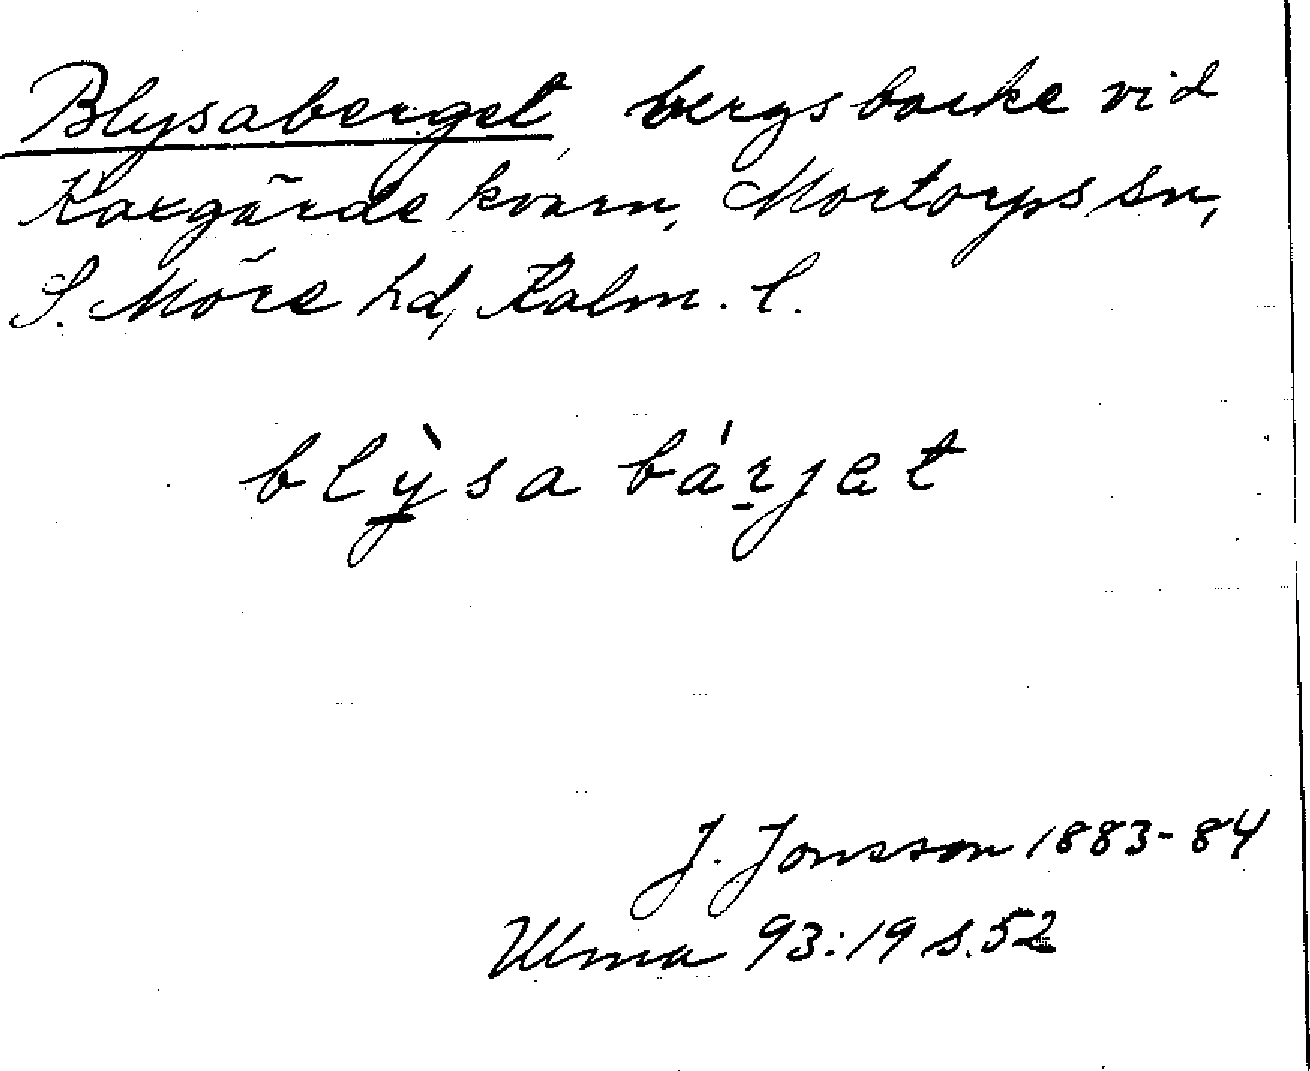 Blysaberget bergsbacke vid
Kaxgärde kvarn, Mortorps sn,
S. Möre hd, Kalm. l.
blỳsa bárjet
J. Jonsson 1883-84
Ulma 93:19 s. 52